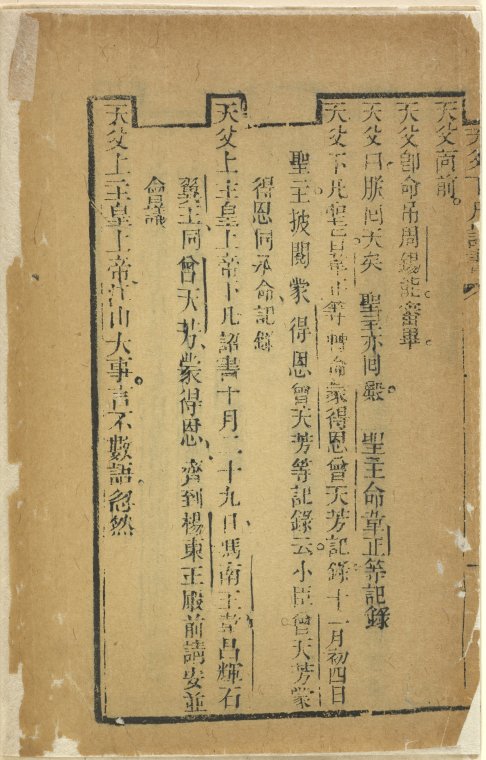 天父下凡詔書
天父面前。
天父卽命吊周錫能審畢。
天父曰朕回天矣 聖主亦回殿。 聖主命韋正等記錄
天父下凡聖旨韋正等轉命蒙得恩曾天芳記錄十一月初四日
聖主披閱蒙得恩曾天芳等記錄云小臣曾天芳蒙
得恩同承命記錄
天父上主皇上帝下凡詔書十月二十九日馮南王韋昌輝石
翼王同曾天芳蒙得恩、齊到楊東王殿前請安並
僉同議
天父上主皇上帝江山大事言不數語。忽然